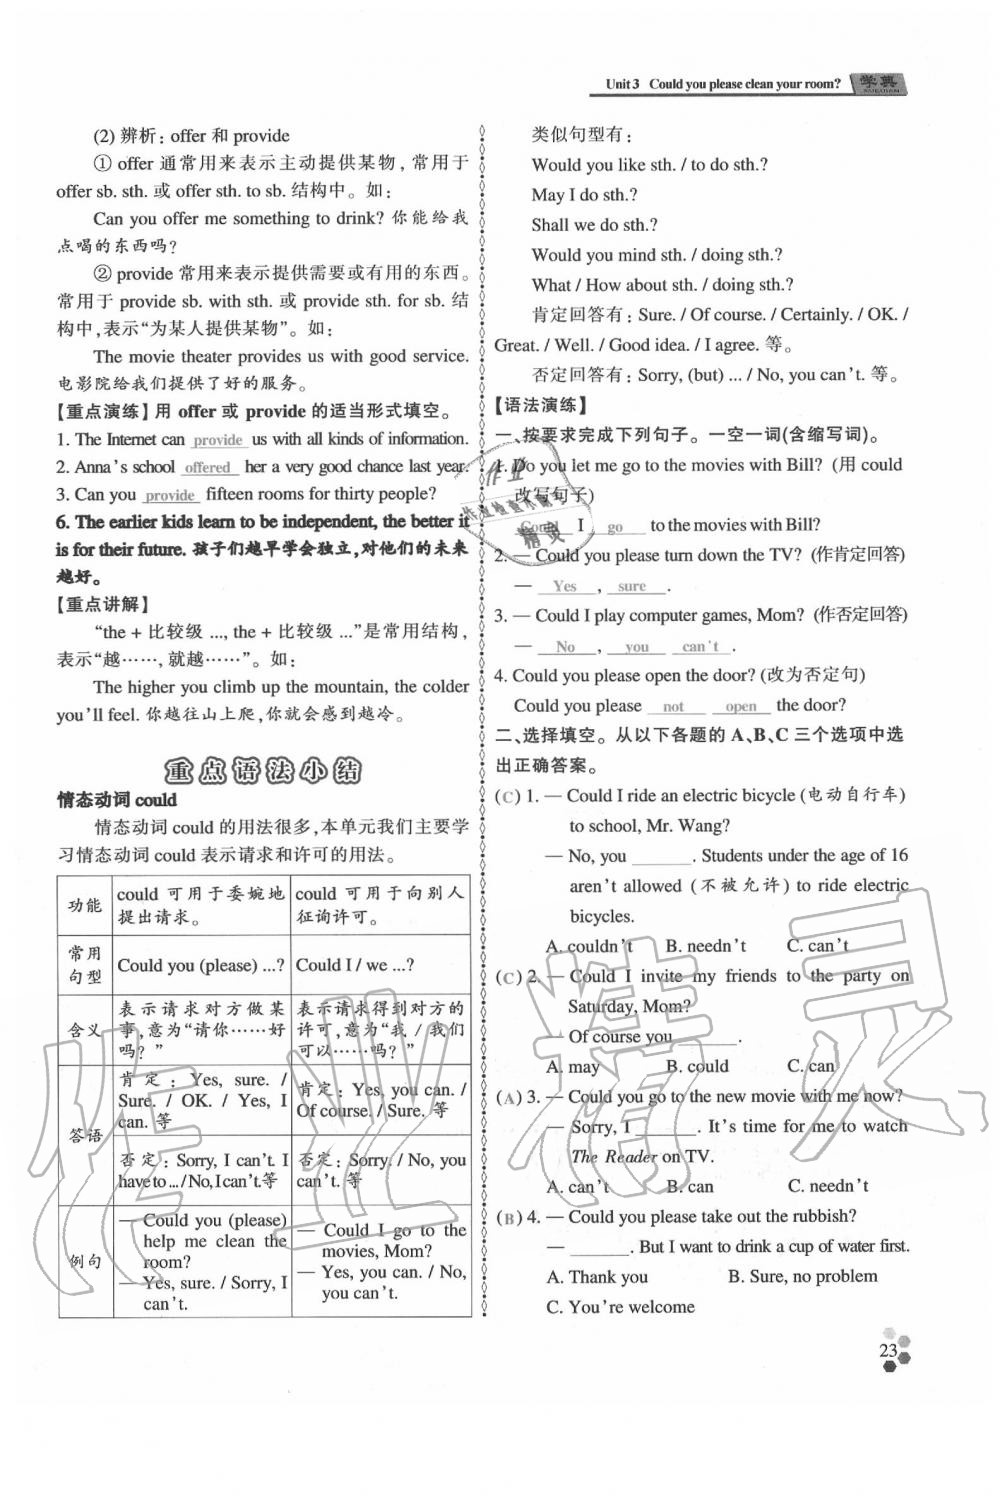 Unit 3 Could you please clean your room? 学典
XUEDIAN
(2) 辨析: offer 和 provide
① offer 通常用来表示主动提供某物, 常用于
offer sb. sth. 或 offer sth. to sb. 结构中。如:
Can you offer me something to drink? 你能给我
点喝的东西吗?
② provide 常用来表示提供需要或有用的东西。
常用于 provide sb. with sth. 或 provide sth. for sb. 结
构中,表示“为某人提供某物”。如:
The movie theater provides us with good service.
电影院给我们提供了好的服务。
【重点演练】用 offer 或 provide 的适当形式填空。
1. The Internet can provide us with all kinds of information.
2. Anna's school offered her a very good chance last year.
3. Can you provide fifteen rooms for thirty people?
6. The earlier kids learn to be independent, the better it
is for their future. 孩子们越早学会独立,对他们的未来
越好。
【重点讲解】
“the + 比较级 ..., the + 比较级 ...”是常用结构,
表示“越……,就越……”。如:
The higher you climb up the mountain, the colder
you'll feel. 你越往山上爬,你就会感到越冷。
重点语法小结
情态动词 could
情态动词 could 的用法很多,本单元我们主要学
习情态动词 could 表示请求和许可的用法。
功能
could 可用于委婉地
提出请求。
could 可用于向别人
征询许可。
常用
句型
Could you (please) ...?
Could I / we ...?
含义
表示请求对方做某
事,意为“请你……好
吗?”
表示请求得到对方的
许可,意为“我 / 我们
可以……吗?”
答语
肯定: Yes, sure. /
Sure. / OK. / Yes, I
can. 等
肯定: Yes, you can. /
Of course. / Sure. 等
否定: Sorry, I can't. I
have to ... / No, I can't. 等
否定: Sorry. / No, you
can't. 等
例句
— Could you (please)
help me clean the
room?
— Yes, sure. / Sorry, I
can't.
— Could I go to the
movies, Mom?
— Yes, you can. / No,
you can't.
类似句型有:
Would you like sth. / to do sth.?
May I do sth.?
Shall we do sth.?
Would you mind sth. / doing sth.?
What / How about sth. / doing sth.?
肯定回答有: Sure. / Of course. / Certainly. / OK. /
Great. / Well. / Good idea. / I agree. 等。
否定回答有: Sorry, (but) ... / No, you can't. 等。
【语法演练】
一、按要求完成下列句子。一空一词(含缩写词)。
1. Do you let me go to the movies with Bill? (用 could
改写句子)
Could I go to the movies with Bill?
2. — Could you please turn down the TV? (作肯定回答)
— Yes , sure .
3. — Could I play computer games, Mom? (作否定回答)
— No , you can't .
4. Could you please open the door? (改为否定句)
Could you please not open the door?
二、选择填空。从以下各题的 A、B、C 三个选项中选
出正确答案。
(C) 1. — Could I ride an electric bicycle (电动自行车)
to school, Mr. Wang?
— No, you ______. Students under the age of 16
aren't allowed (不被允许) to ride electric
bicycles.
A. couldn't B. needn't C. can't
(C) 2. — Could I invite my friends to the party on
Saturday, Mom?
— Of course you ______.
A. may B. could C. can
(A) 3. — Could you go to the new movie with me now?
— Sorry, I ______. It's time for me to watch
The Reader on TV.
A. can't B. can C. needn't
(B) 4. — Could you please take out the rubbish?
— ______. But I want to drink a cup of water first.
A. Thank you B. Sure, no problem
C. You're welcome
23
作业
作业检查小助手
精灵
作业精灵